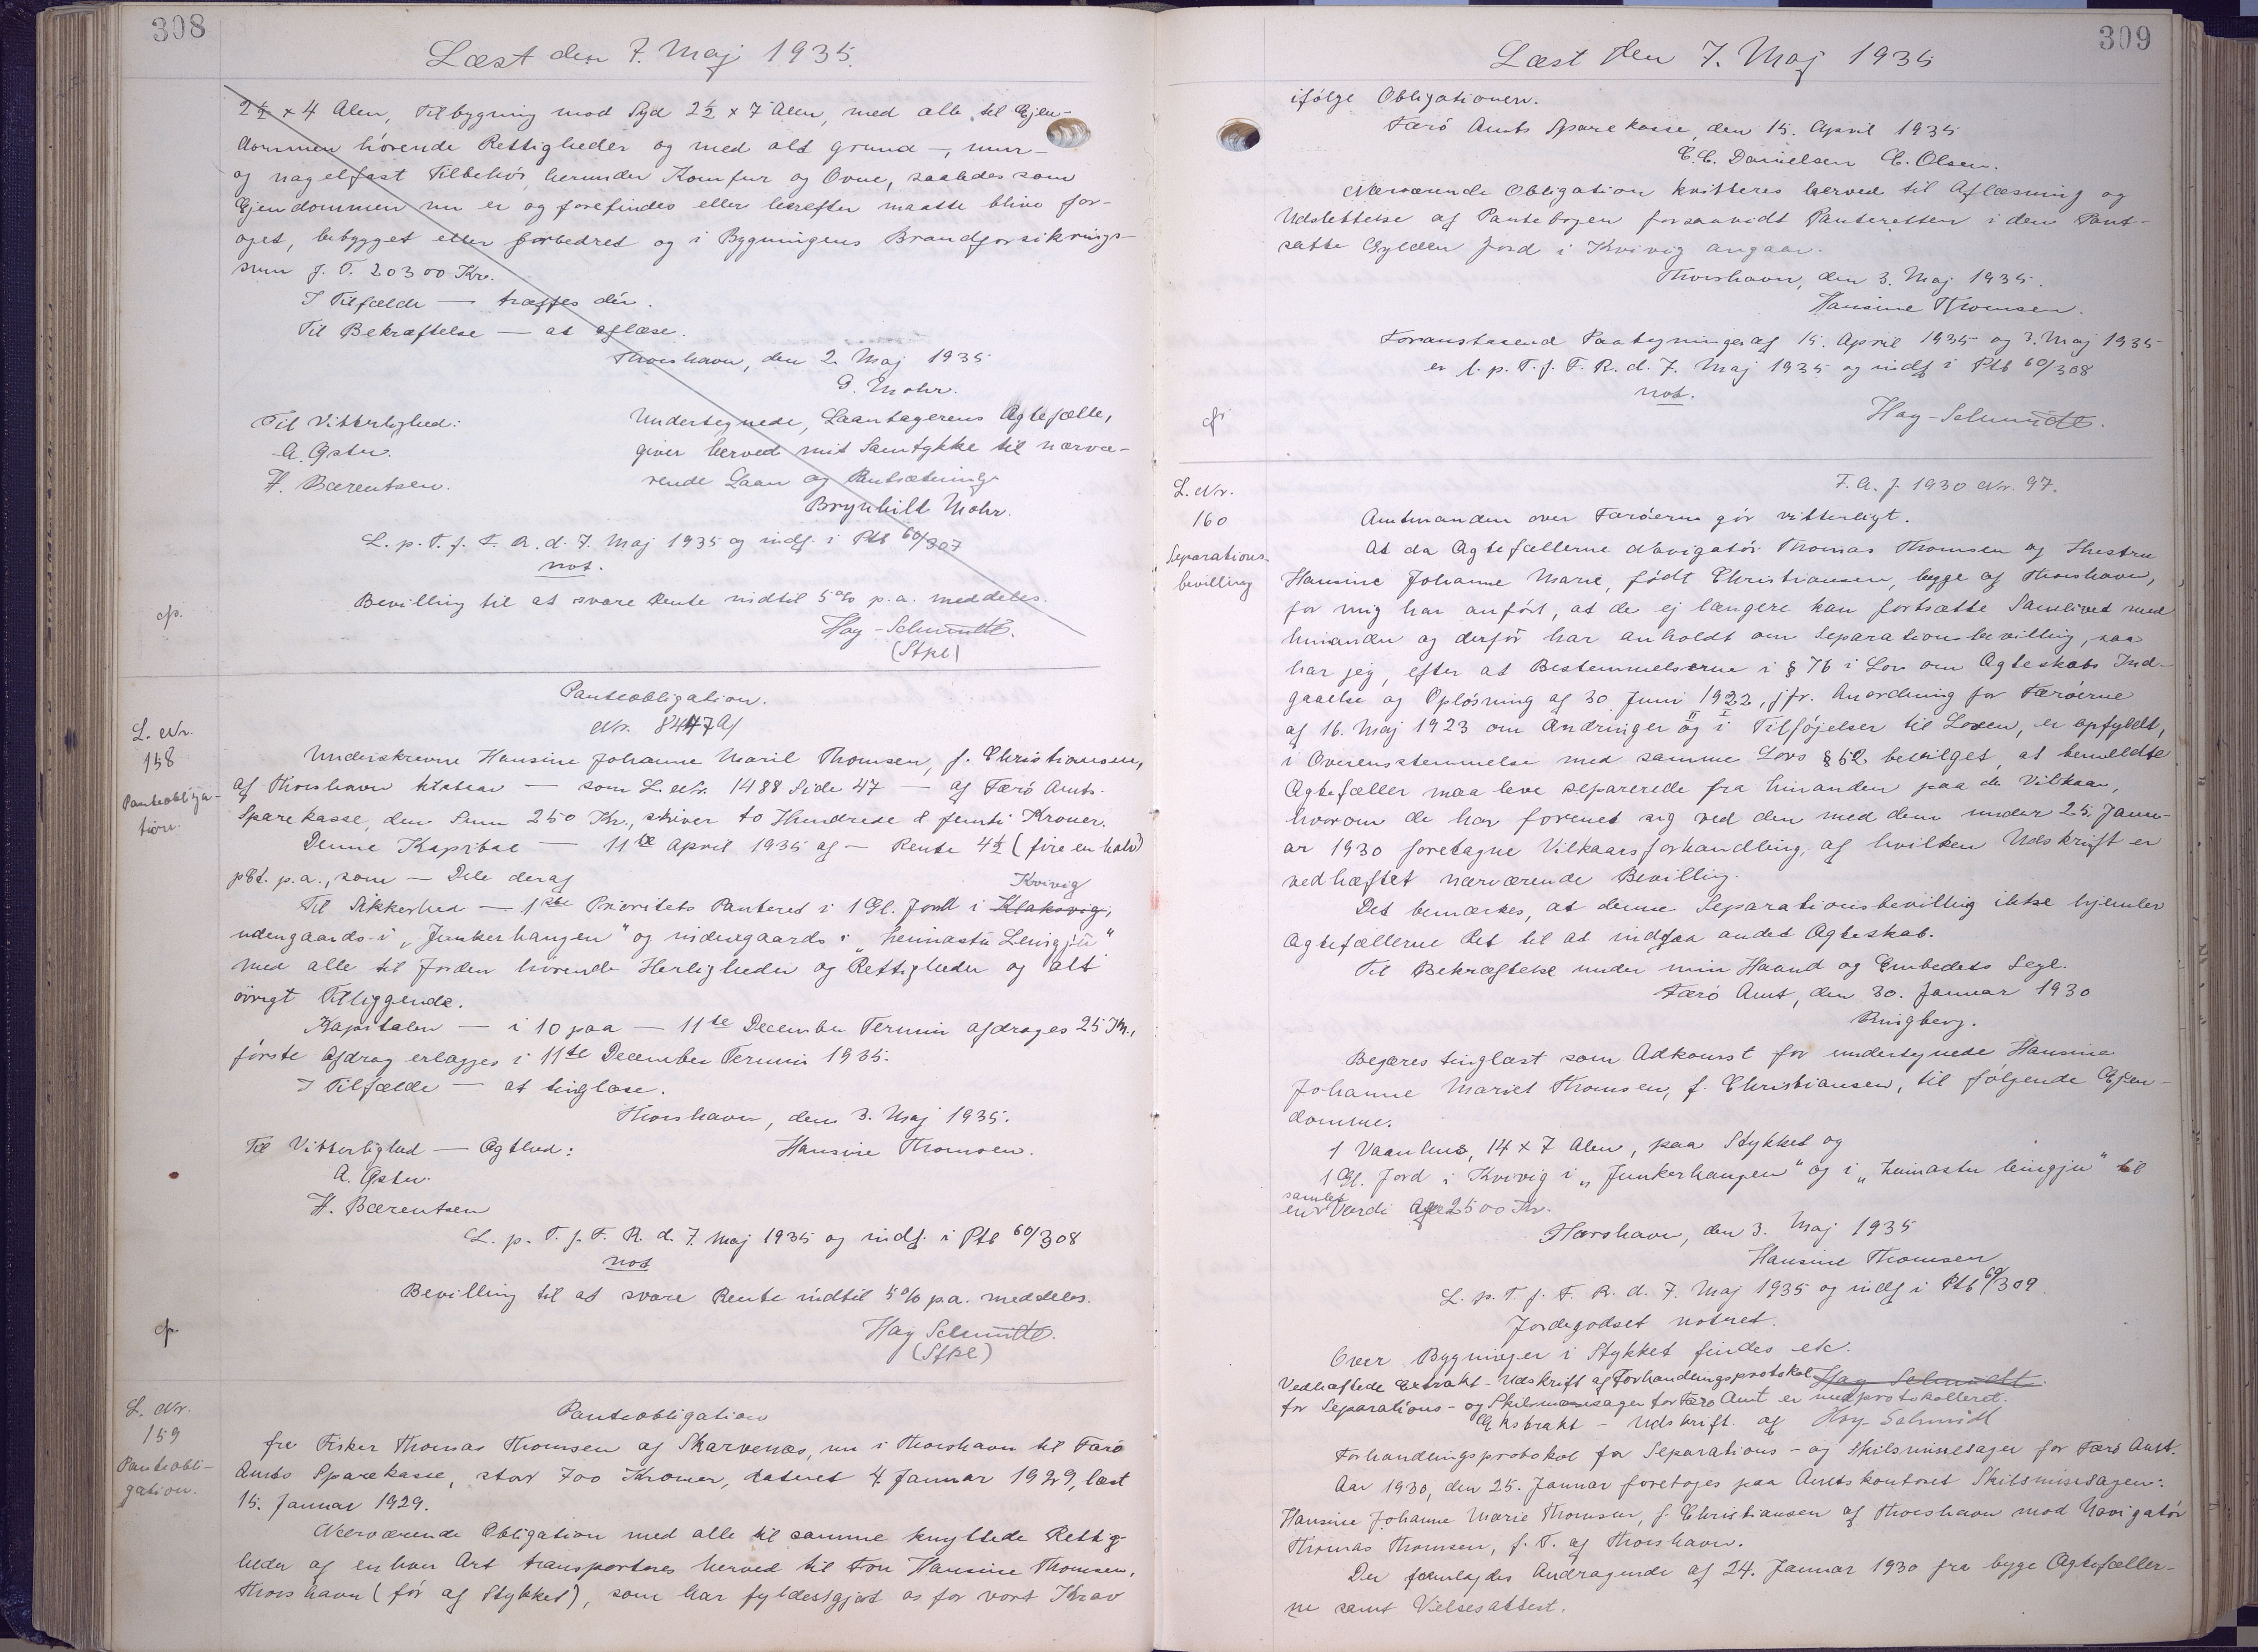 308
Læst den 7. Maj 1935.
2½ x 4 Alen, Tilbygning mod Syd 2½ x 7 Alen, med alle til Ejen-
dommen hörende Rettigheder og med alt grund-, mur-
og nagelfast Tilbehör, herunder Komfur og Ovne, saaledes som
Ejendommen nu er og forefindes eller herefter maatte blive for-
øget, bebygget eller forbedret og i Bygningens Brandforsikrings-
sum f. T. 20300 Kr.
I Tilfælde — træffes dér.
Til Bekræftelse — at aflæse.
Thorshavn, den 2. Maj 1935
G. Mohr.
Til Vitterlighed:
A. Øster.
H. Bærentsen.
Undertegnede, Laantagerens Ægtefælle,
giver herved mit Samtykke til nærvæ-
rende Laan og Pantsætning.
Brynhilt Mohr.
L. p. T. f. F. R. d. 7. Maj 1935 og indf. i Ptb 60/307
not.
cfr.
Bevilling til at svare Rente indtil 5% p.a. meddeles.
Hay-Schmidt.
(Stpl)
L. Nr.
158
Panteobliga-
tion.
Panteobligation.
Nr. 8447 Af
Underskrevne Hansine Johanne Mariel Thomsen, f. Christiansen,
af Thorshavn tilstaar — som L. Nr. 1488 Side 47 — af Færö Amts
Sparekasse, den Sum 250 Kr., skriver to Hundrede & femti Kroner.
Denne Kapital — 11te April 1935 af — Rente 4½ (fire en halv)
pCt. p.a., som — Dele deraf
Kvivig
Til Sikkerhed — 1ste Prioritets Panteret i 1 Gl. Jord i Klaksvig,
udengaards i „Junkerhaugen" og indengaards i „heimastu Leingjú"
med alle til Jorden hörende Herligheder og Rettigheder og alt
övrigt Tilliggende.
Kapitalen — i 10 paa — 11te December Termin afdrages 25 Kr.,
förste Afdrag erlægges i 11te December Termin 1935.
I Tilfælde — at tinglæse.
Thorshavn, den 3. Maj 1935.
Til Vitterlighed — Ægthed:
Hansine Thomsen.
A. Øster.
H. Bærentsen
L. p. T. f. F. R. d. 7. Maj 1935 og indf. i Ptb 60/308
not
Bevilling til at svare Rente indtil 5% p.a. meddeles.
cfr.
Hay Schmidt.
(Stpl)
L. Nr.
159
Panteobli-
gation.
Panteobligation
fra Fisker Thomas Thomsen af Skarvenæs, nu i Thorshavn til Færö
Amts Sparekasse, stor 700 Kroner, dateret 4 Januar 1929, læst
15. Januar 1929.
Nærværende Obligation med alle til samme knyttede Rettig-
heder af enhver Art transporteres herved til Fru Hansine Thomsen,
Thorshavn (för af Stykket), som har fyldestgjort os for vort Krav
309
Læst den 7. Maj 1935
ifölge Obligationen.
Færö Amts Sparekasse, den 15. April 1935
C.C. Danielsen C. Olsen.
Nærværende Obligation kvitteres herved til Aflæsning og
Udslettelse af Pantebogen forsaavidt Panteretten i den Pant-
satte Gylden Jord i Kvivig angaar.
Thorshavn, den 3. Maj 1935.
Hansine Thomsen.
Foranstaaend Paategninger af 15. April 1935 og 3. Maj 1935
er l. p. T. f. F. R. d. 7. Maj 1935 og indf i Ptb 60/308
not.
cfr
Hay-Schmidt.
L. Nr.
160
Separations-
bevilling
F. A. J. 1930 Nr. 97.
Amtmanden over Færöerne gör vitterligt.
At da Ægtefællerne Navigatör Thomas Thomsen og Hustru
Hansine Johanne Marie, födt Christiansen, begge af Thorshavn,
for mig har anfört, at de ej længere kan fortsætte Samlivet med
hinanden og derför har anholdt om Separationsbevilling, saa
har jeg, efter at Bestemmelserne i § 76 i Lov om Ægteskabs Ind-
gaaelse og Oplösning af 30. Juni 1922, jfr. Anordning for Færöerne
af 16. Maj 1923 om Ændringer og i Tilföjelser til Loven, er opfyldt,
i Overensstemmelse med samme Lovs § 52 bevilget, at bemeldte
Ægtefæller maa leve separerede fra hinanden paa de Vilkaar,
hvorom de har forenet sig ved den med dem under 25. Janu-
ar 1930 foretagne Vilkaarsforhandling, af hvilken Udskrift er
vedhæftet nærværende Bevilling.
Det bemærkes, at denne Separationsbevilling ikke hjemler
Ægtefællerne Ret til at indgaa andet Ægteskab.
Til Bekræftelse under min Haand og Embedets Segl.
Færö Amt, den 30. Januar 1930
Ringberg.
Begæres tinglæst som Adkomst for undertegnede Hansine
Johanne Mariel Thomsen, f. Christiansen, til følgende Ejen-
domme.
1 Vaanhus, 14 x 7 Alen, paa Stykket og
1 Gl. Jord i Kvivig i „Junkerhaugen" og i „heimastu leingju" til
samlet
en Værdi af 2500 Kr.
Thorshavn, den 3. Maj 1935
Hansine Thomsen
L. p. T. f. F. R. d. 7. Maj 1935 og indf i Ptb 60/309.
Jordegodset noteret.
Over Bygninger i Stykket findes etc.
Vedhæftede Extrakt-Udskrift af Forhandlingsprotokol Hay Schmidt.
for Separations- og Skilsmissesager for Færö Amt er medprotokolleret.
Ekstrakt - Udskrift af Hay-Schmidt
Forhandlingsprotokol for Separations- og Skilsmissesager for Færö Amt.
Aar 1930, den 25. Januar foretoges paa Amtskontoret Skilsmissesagen:
Hansine Johanne Marie Thomsen, f. Christiansen af Thorshavn mod Navigatör
Thomas Thomsen, f. T. af Thorshavn.
Der fremlagdes Andragende af 24. Januar 1930 fra begge Ægtefæller-
ne samt Vielsesattest.